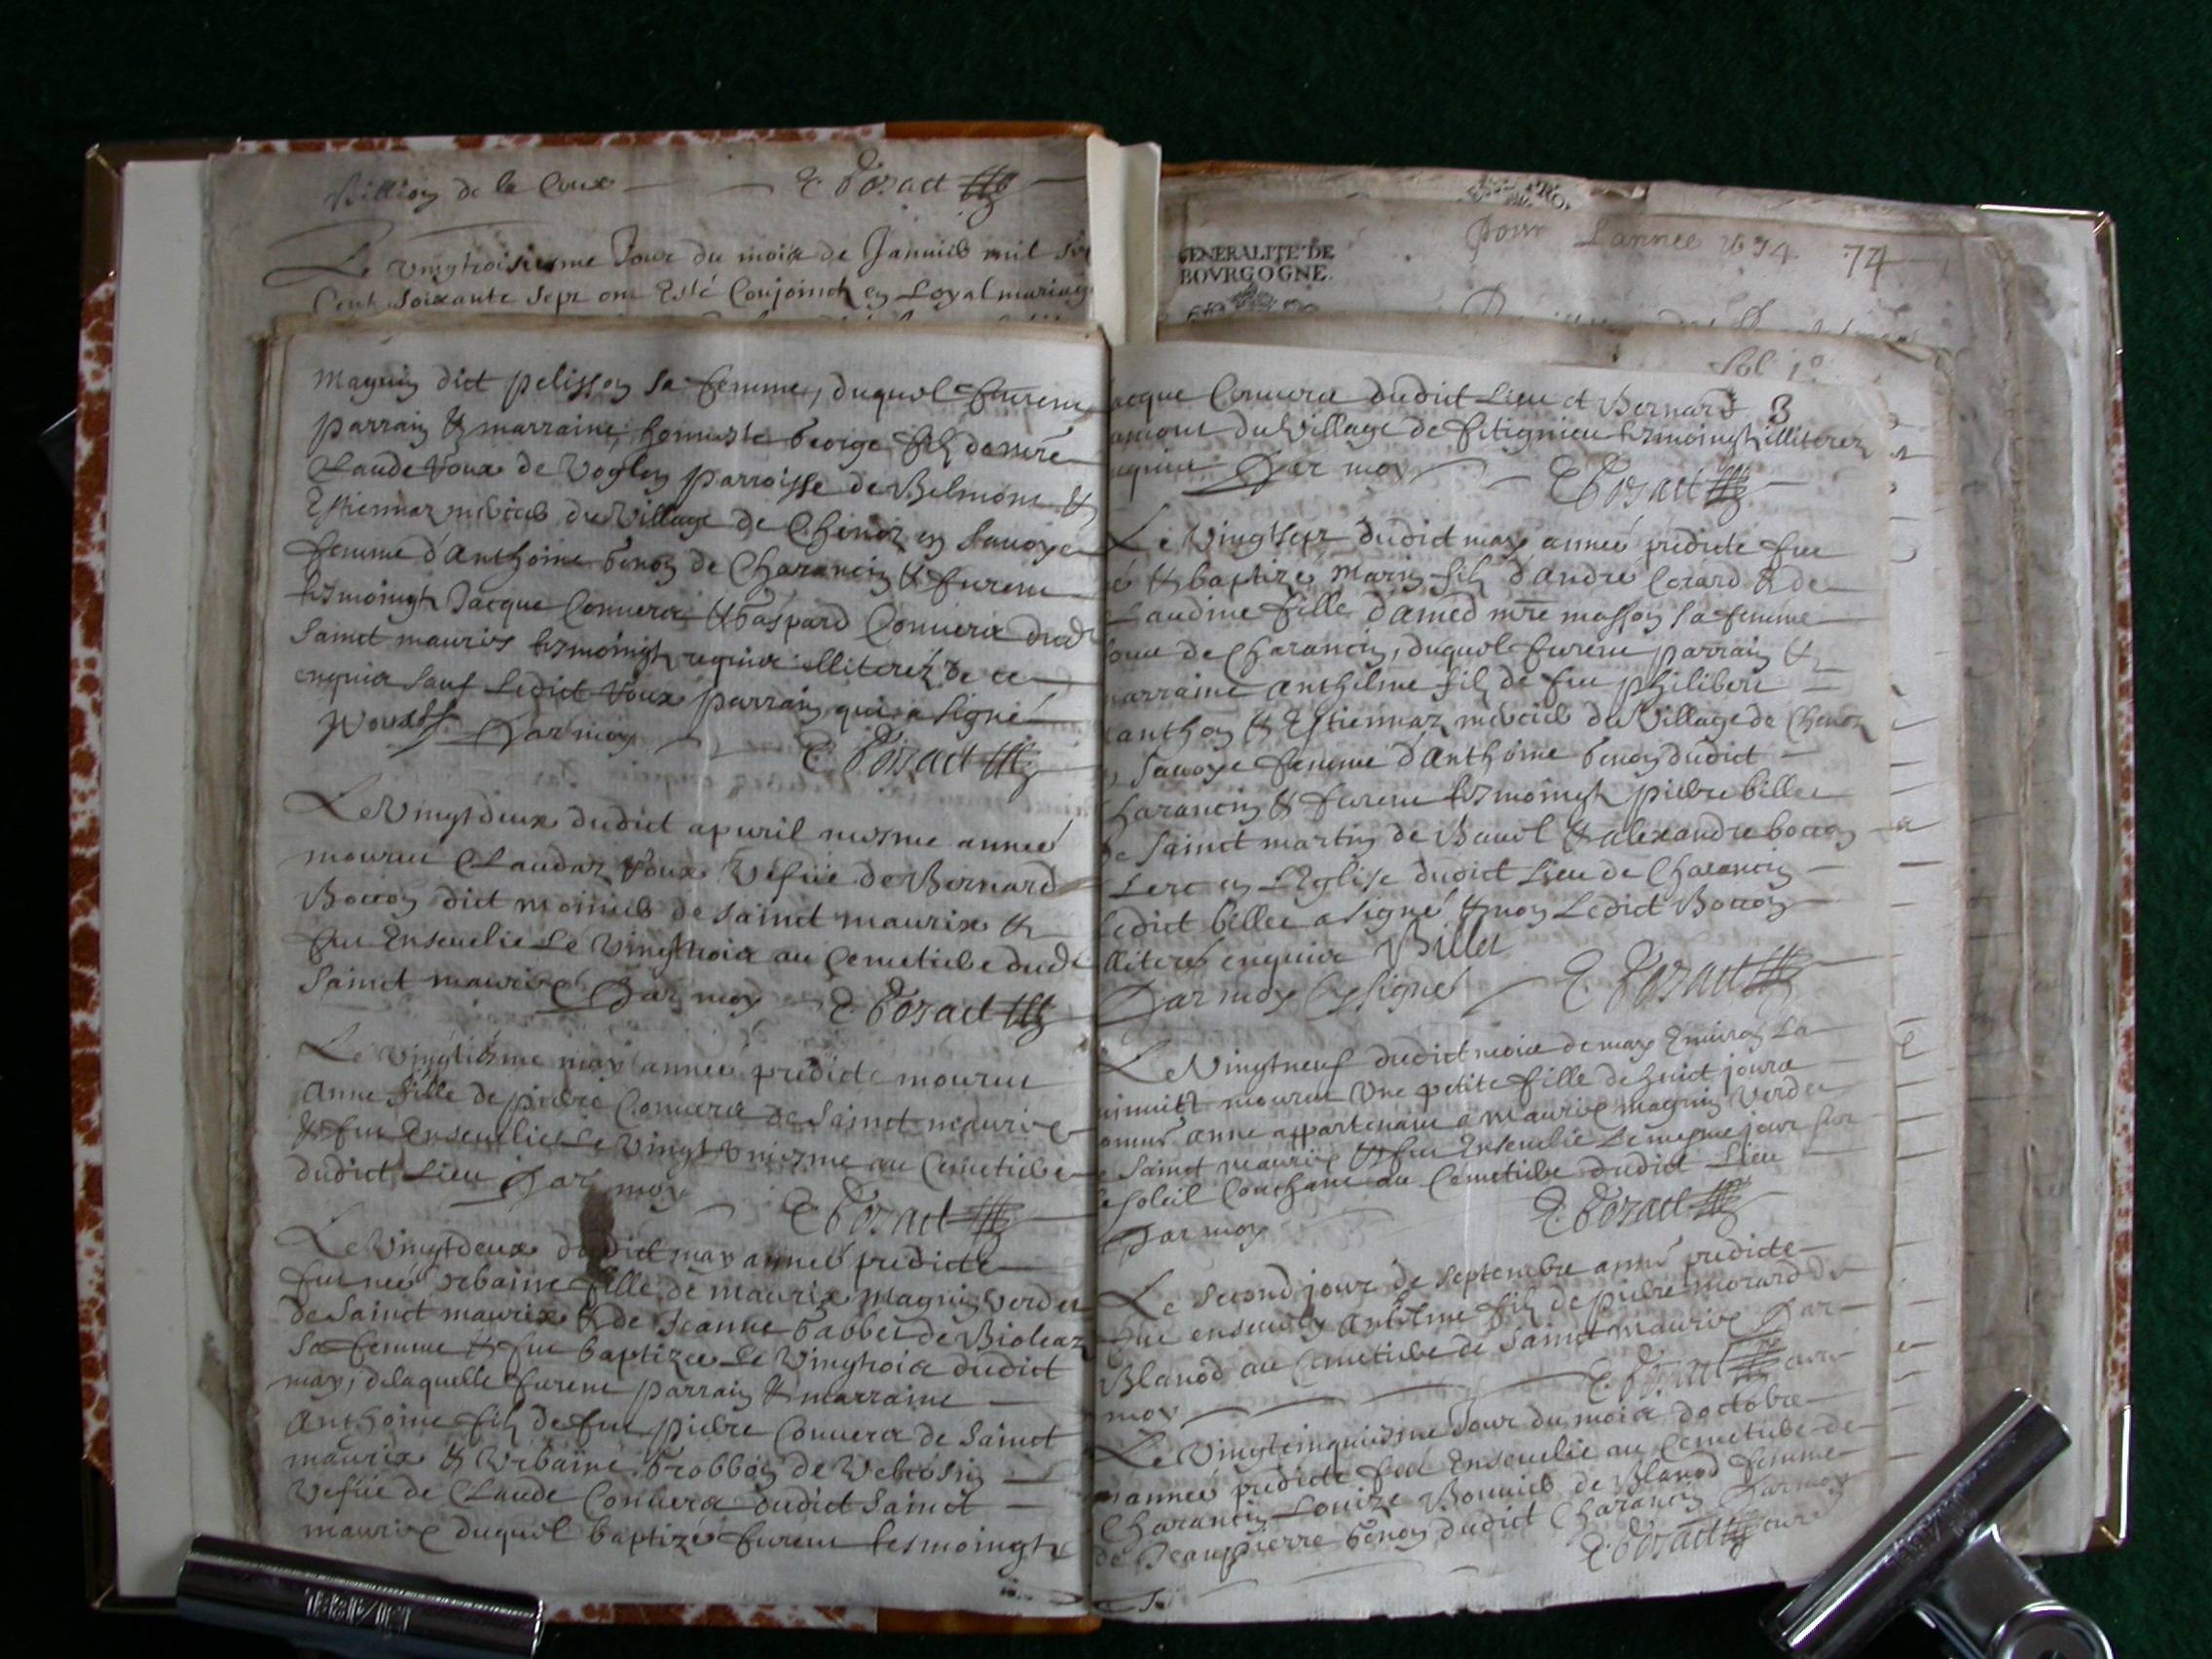 Billion de la Coux E. Bozact
Le vingtroisiesme Jour du mois de Januier mil six
Cent soixante sept ont Esté Conjoinct en Loyal mariage
Magnin dict pelisson sa femme, duquel furent
parrain & marraine, honneste George filz de
Claude Roux de Voglen parroisse de Belmont &
Estiennaz mercier du Village de Chenoz en Sauoye
femme d'Anthoine Genon de Charancin & furent
tesmoingtz Jacque Conuerd & Gaspard Conuerd dud
Sainct mauris tesmoingtz requis illiterez de ce
enquis sauf Ledict Roux parrain qui a signé
Par moy E. Bozact
Le Vingtdeux dudict apuril mesme année
mourut Claudaz Roux Vefue de Bernard
Bocon dict monnier de Sainct mauris &
fut Enseuelie Le Vingttrois au Cemetiere dud
Sainct mauris Par moy E. Bozact
Le vingtiesme may année predicte mourut
Anne fille de pierre Conuerd de Sainct mauris
& fut Enseuelie Le Vingt Vniesme au Cemetiere
dudict Lieu Par moy E. Bozact
Le Vingtdeux dudict may année predicte
fut née Vrbaine fille de mauris Magnin Verdet
de Sainct mauris & de Jeanne Gabbet de Bioleaz
sa femme & fut baptizee Le Vingtrois dudict
may, delaquelle furent parrain & marraine
Anthoine filz de feu pierre Conuerd de Sainct
mauris & Vrbaine Grobbon de
Vefue de Claude Conuerd dudict Sainct
mauris duquel baptizé furent tesmoingtz
GENERALITE DE
BOVRGOGNE.
Pour Lannee 1674 74
fol 1º
acque Conuerd dudict Lieu et Bernard 3
du Village de fitignieu tesmoingtz illiterez
nquis Par moy E. Bozact
Le Vingtsept dudict may année predicte fut
é & baptizé Marin filz d'André Corard & de
Laudine fille d'Amed masson sa femme
de Charancin, duquel furent parrain &
arraine anthelme filz de feu philibert
anthon & Estiennaz mercier du Village de Chenoz
Sauoye femme d'Anthoine Genon dudict
harancin & furent tesmoingtz pierre billet
de Sainct martin de Bauel & alexandre bocon
Lerc en L'Eglise dudict Lieu de Charancin
Ledict billet a signé & non Ledict Bocon
lliteré enquis Billet
Par moy soubsigné E. Bozact
Le Vingtneuf dudict mois de may Enuiron La
minuict mourut Une petite fille de huict jours
anne appartenant a mauris magnin Verdet
de Sainct mauris & fut Enseuelie Le mesme jour sur
le soleil Couchant au Cemetiere dudict Lieu
Par moy E. Bozact
Le second jour de Septembre année predicte
fut enseuely anthelme filz de pierre morard de
Blanod au Cemetiere de Sainct mauris Par
moy E. Bozact curé
Le Vingtcinquiesme Jour du mois doctobre
année predicte feut Enseuelie au Cemetiere de
Charancin Louize Bonnier de Blanod femme
de Jeanpierre Genon dudict Charancin Par moy
E. Bozact curé